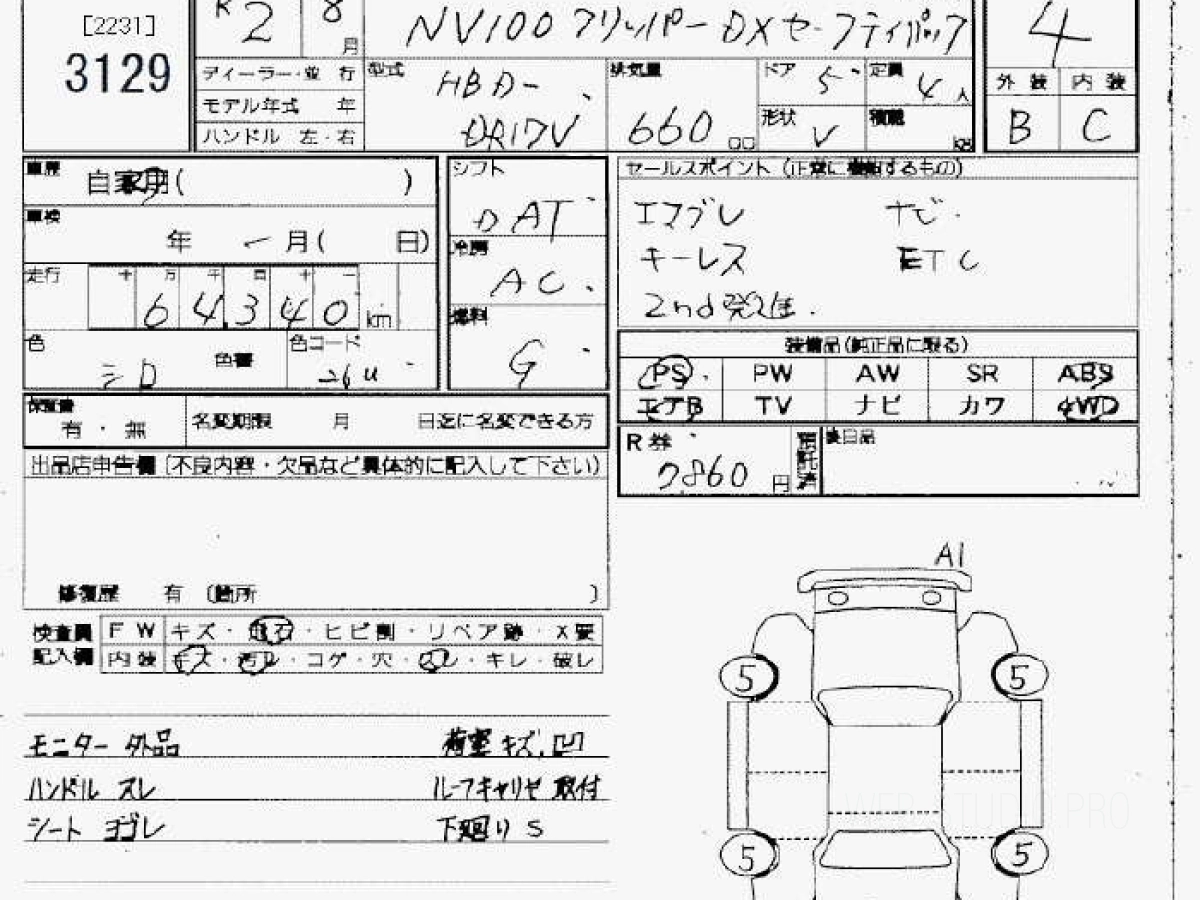 [2231]
3129
R 2 8 月
NV100 クリッパー DX セーフティパック
4
ディーラー・並 行
モデル年式 年
ハンドル 左・右
型式
HBD-
DR17V
排気量
660
ドア 5
定員 4 人
形状 V
積載 kg
外 装 内 装
B C
車歴
自家用( )
車検
年 月( 日)
走行
十 万 千 百 十 一
64340 km
色
色替
色コード
26U
シフト
DAT
冷房
AC
燃料
G
セールスポイント (正常に機能するもの)
エマブレ ナビ
キーレス ETC
2nd発進
装備品(純正品に限る)
PS PW AW SR ABS
エアB TV ナビ カワ 4WD
保証書
有 ・ 無
名変期限 月 日迄に名変できる方
R券
7860 円
預託済
後日品
出品店申告欄 (不良内容・欠品など具体的に記入して下さい)
修復歴 有 (箇所 )
検査員
記入欄
F W キズ・飛石・ヒビ割・リペア跡・X要
内 装 キズ・汚レ・コゲ・穴・スレ・キレ・破レ
モニター 外品 荷室 キズ, 凹
ハンドル スレ ルーフキャリヤ 取付
シート ヨゴレ 下廻り S
A1
5 5
5 5
WEB STUDIO PRO